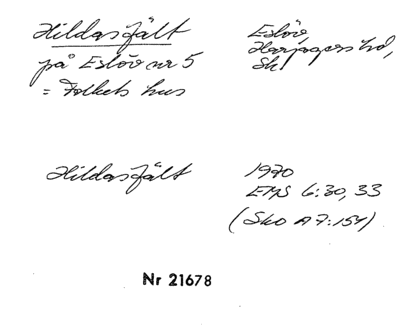 Hildasfält
på Eslöv nr 5
= Folkets hus
Eslöv,
Harjagers hd,
Sk
Hildasfält
1970
EMS 6:30, 33
(Sko A7:154)
Nr 21678